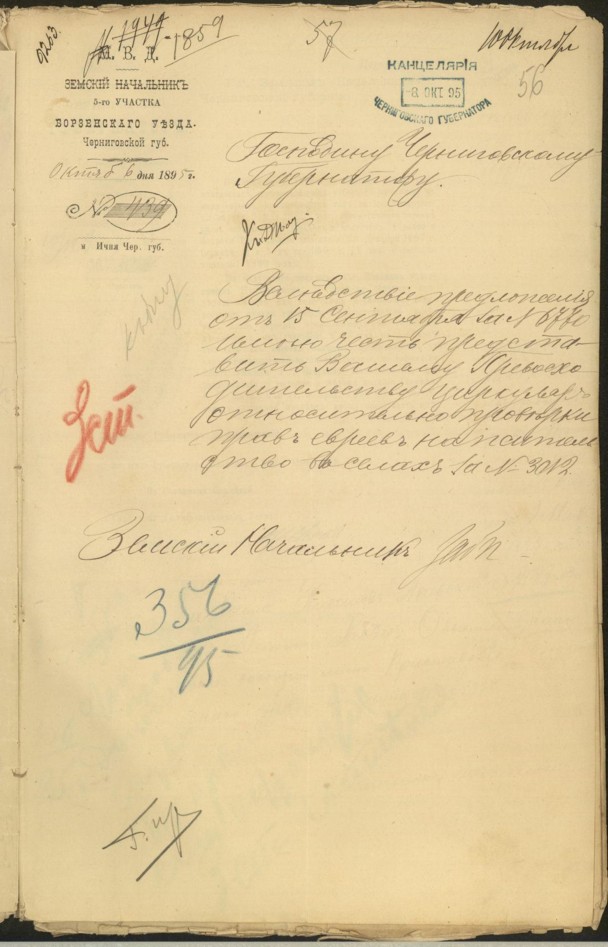 9263.
1859
57
10 Октября
М. В. Д.
ЗЕМСКІЙ НАЧАЛЬНИКЪ
5-го УЧАСТКА
БОРЗЕНСКАГО УѢЗДА.
Черниговской губ.
Октяб 6 дня 1895 г.
№ 439
м Ичня Чер. губ.
КАНЦЕЛЯРІЯ
8. ОКТ. 95
ЧЕРНИГОВСКАГО ГУБЕРНАТОРА
56
Господину Черниговскому
Губернатору.
Вслѣдствіе предложенія
отъ 15 Сентября за № 6770
имѣю честь предста-
вить Вашему Превосхо
дительству циркуляръ
относительно провѣрки
правъ евреевъ на житель
ство въ селахъ за № 3012.
Земскій Начальникъ
356
95